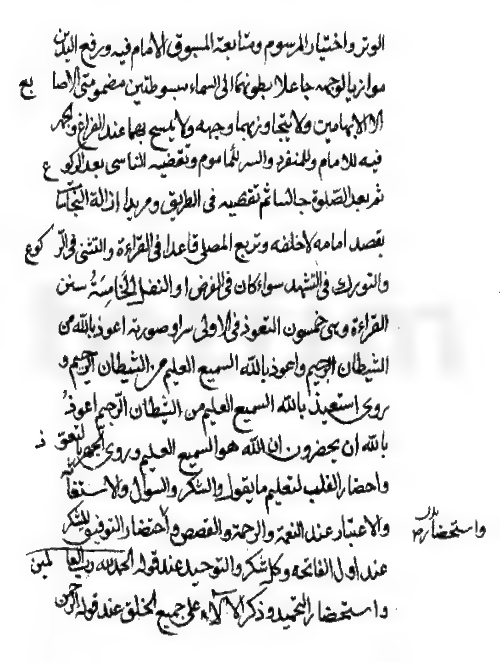 الوتر واختيار المرسوم ومتابعة المسبوق الامام فيه ورفع اليدين
موازيا لوجهه جاعلا بطونهما الى السماء مبسوطتين مضمومتى الاصابع
الا الابهامين ولا يتجاوز بهما وجهه ولا يمسح بهما عند الفراغ والجهر
فيه للامام وللمنفرد والسر للمأموم وتقضيه الناسى بعد الركوع
ثم بعد الصلوة جالسا ثم تقضيه فى الطريق ومريدا ازالة النجاسة
يقصد امامه لا خلفه وتربع المصلى قاعدا فى القراءة والتثنى فى الركوع
والتورك فى التشهد سواء كان فى الفرض او النفل الخامسة سنن
القراءة وهى خمسون التعوذ فى الاولى سرا وصورته اعوذ بالله من
الشيطان الرجيم واعوذ بالله السميع العليم من الشيطان الرجيم و
روى استعيذ بالله السميع العليم من الشيطان الرجيم اعوذ
بالله ان يحضرون ان الله هو السميع العليم وروى الجهر بالتعوذ
واحضار القلب لتعليم ما يقول والشكر والسوال والاستعانة
والاعتبار عند النعمة والرحمة والقصص واحضار التوفيق للشكر
عند اول الفاتحة وكل شكر والتوحيد عند قوله الحمد لله رب العالمين
واستحضار التحميد وذكر الالاء على جميع الخلق عند قوله الرحمن
واستحضار